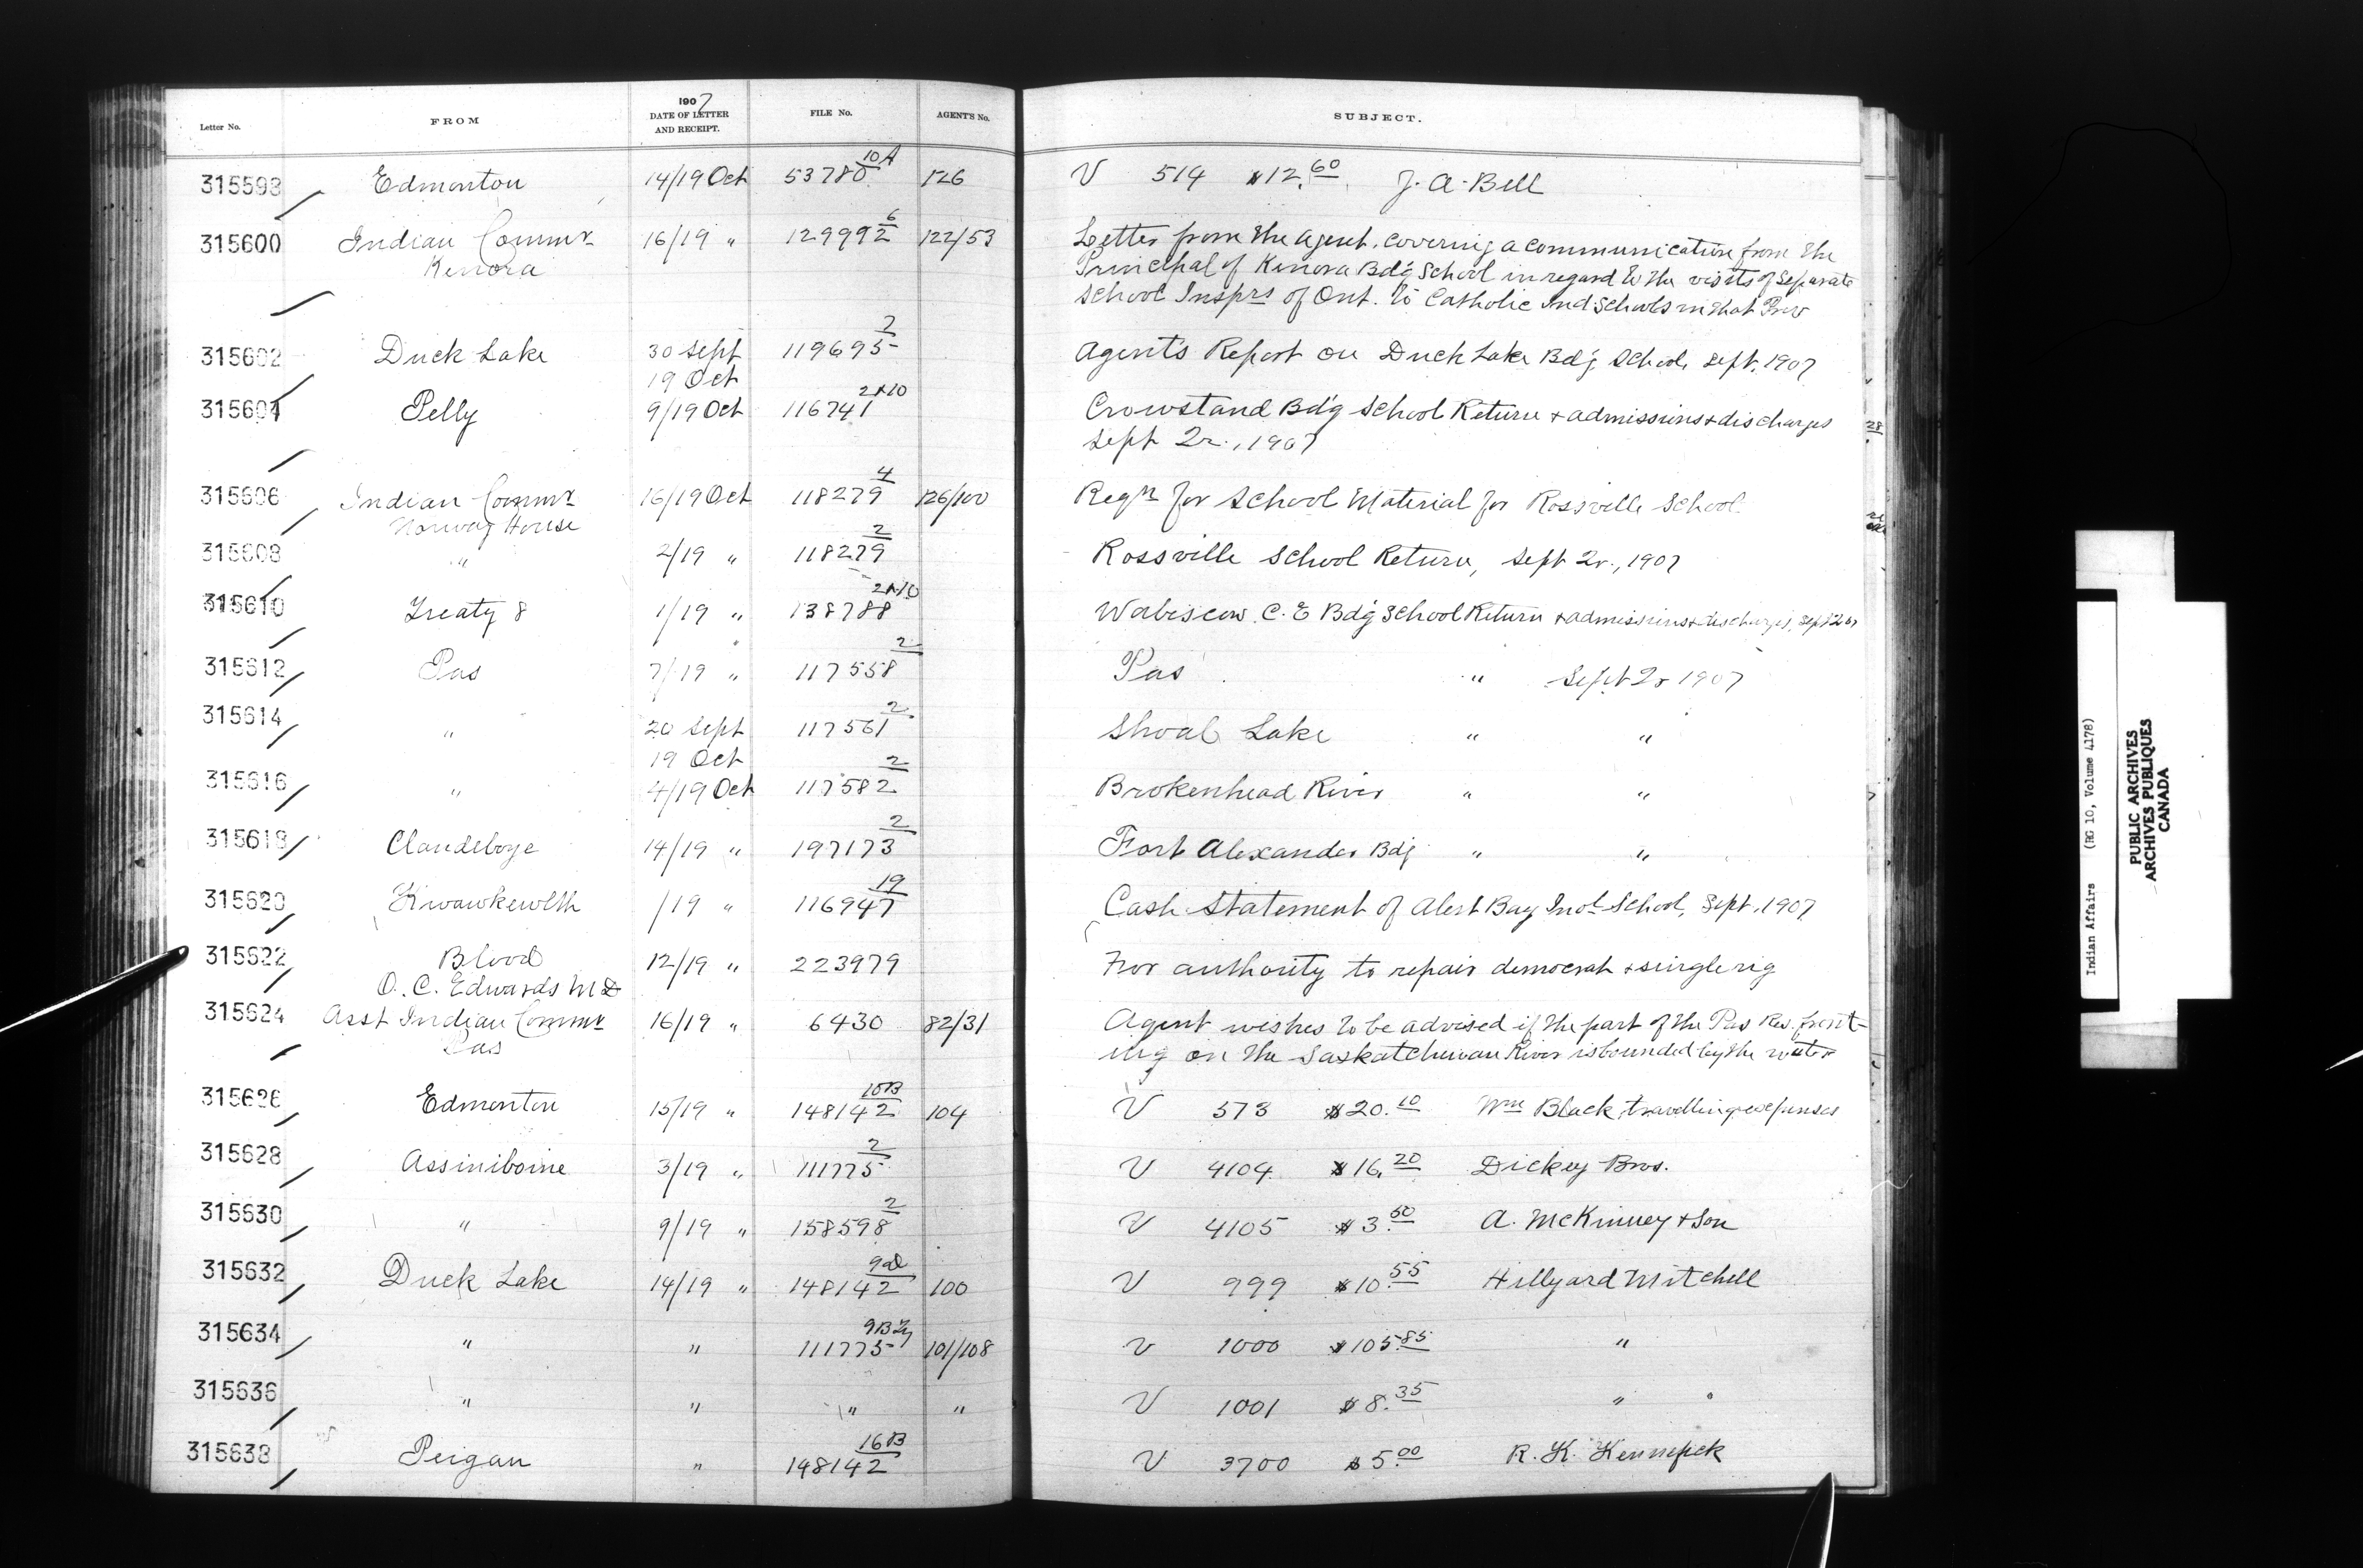 Letter No. FROM 1907 DATE OF LETTER AND RECEIPT. FILE No. AGENT'S No. SUBJECT.
315598 Edmonton 14/19 Oct 53780 10A 126 V 514 $12.60 J. A. Bell
315600 Indian Commr 16/19 " 129992 6 122/53 Letter from the Agent. covering a communication from the
Kenora Principal of Kenora Bdg School in regard to the visits of Separate
School Insprs of Ont. to Catholic Ind Schools in that Prov
315602 Duck Lake 30 Sept 119695 7 Agent's Report on Duck Lake Bdg School, Sept. 1907
19 Oct
315604 Pelly 9/19 Oct 116741 2+10 Crowstand Bdg School Return + admissions + discharges
Sept 2r., 1907
28
315606 Indian Commr 16/19 Oct 118279 4 126/100 Reqn for School Material for Rossville School.
Norway House
315608 " 2/19 " 118279 2 Rossville School Return, Sept 2r., 1907
315610 Treaty 8 1/19 " 138788 2+10 Wabiscow C. E Bdg School Return + admissions + discharges,
315612 Pas 7/19 " 117558 2 Pas " Sept 2r 1907
315614 " 20 Sept 117561 2 Shoal Lake " "
19 Oct
315616 " 4/19 Oct 117582 2 Brokenhead River " "
315618 Clandeboye 14/19 " 197173 2 Fort Alexander Bdg " "
315620 Kwawkewlth /19 " 116947 19 Cash Statement of Alert Bay Indl School, Sept. 1907
315622 Blood 12/19 " 223979 For authority to repair democrat + single rig
O. C. Edwards MD
315624 Asst Indian Commr 16/19 " 6430 82/31 Agent wishes to be advised if the part of the Pas Res. front-
Pas ing on the Saskatchewan River is bounded by the water
315626 Edmonton 15/19 " 148142 10B 104 V 573 $20.10 Wm Black, travelling expenses
315628 Assiniboine 3/19 " 111775 2 V 4104 $16.20 Dickey Bros.
315630 " 9/19 " 158598 2 V 4105 $3.50 A. McKinney + Son
315632 Duck Lake 14/19 " 148142 9D 100 V 999 $10.55 Hillyard Mitchell
315634 " " 111775 101/108 V 1000 $105.85 "
315636 " " " " V 1001 $8.35 "
315638 Peigan " 148142 16B V 3700 $5.00 R. K. Kennefick
Indian Affairs (RG 10, Volume 4178)
PUBLIC ARCHIVES
ARCHIVES PUBLIQUES
CANADA